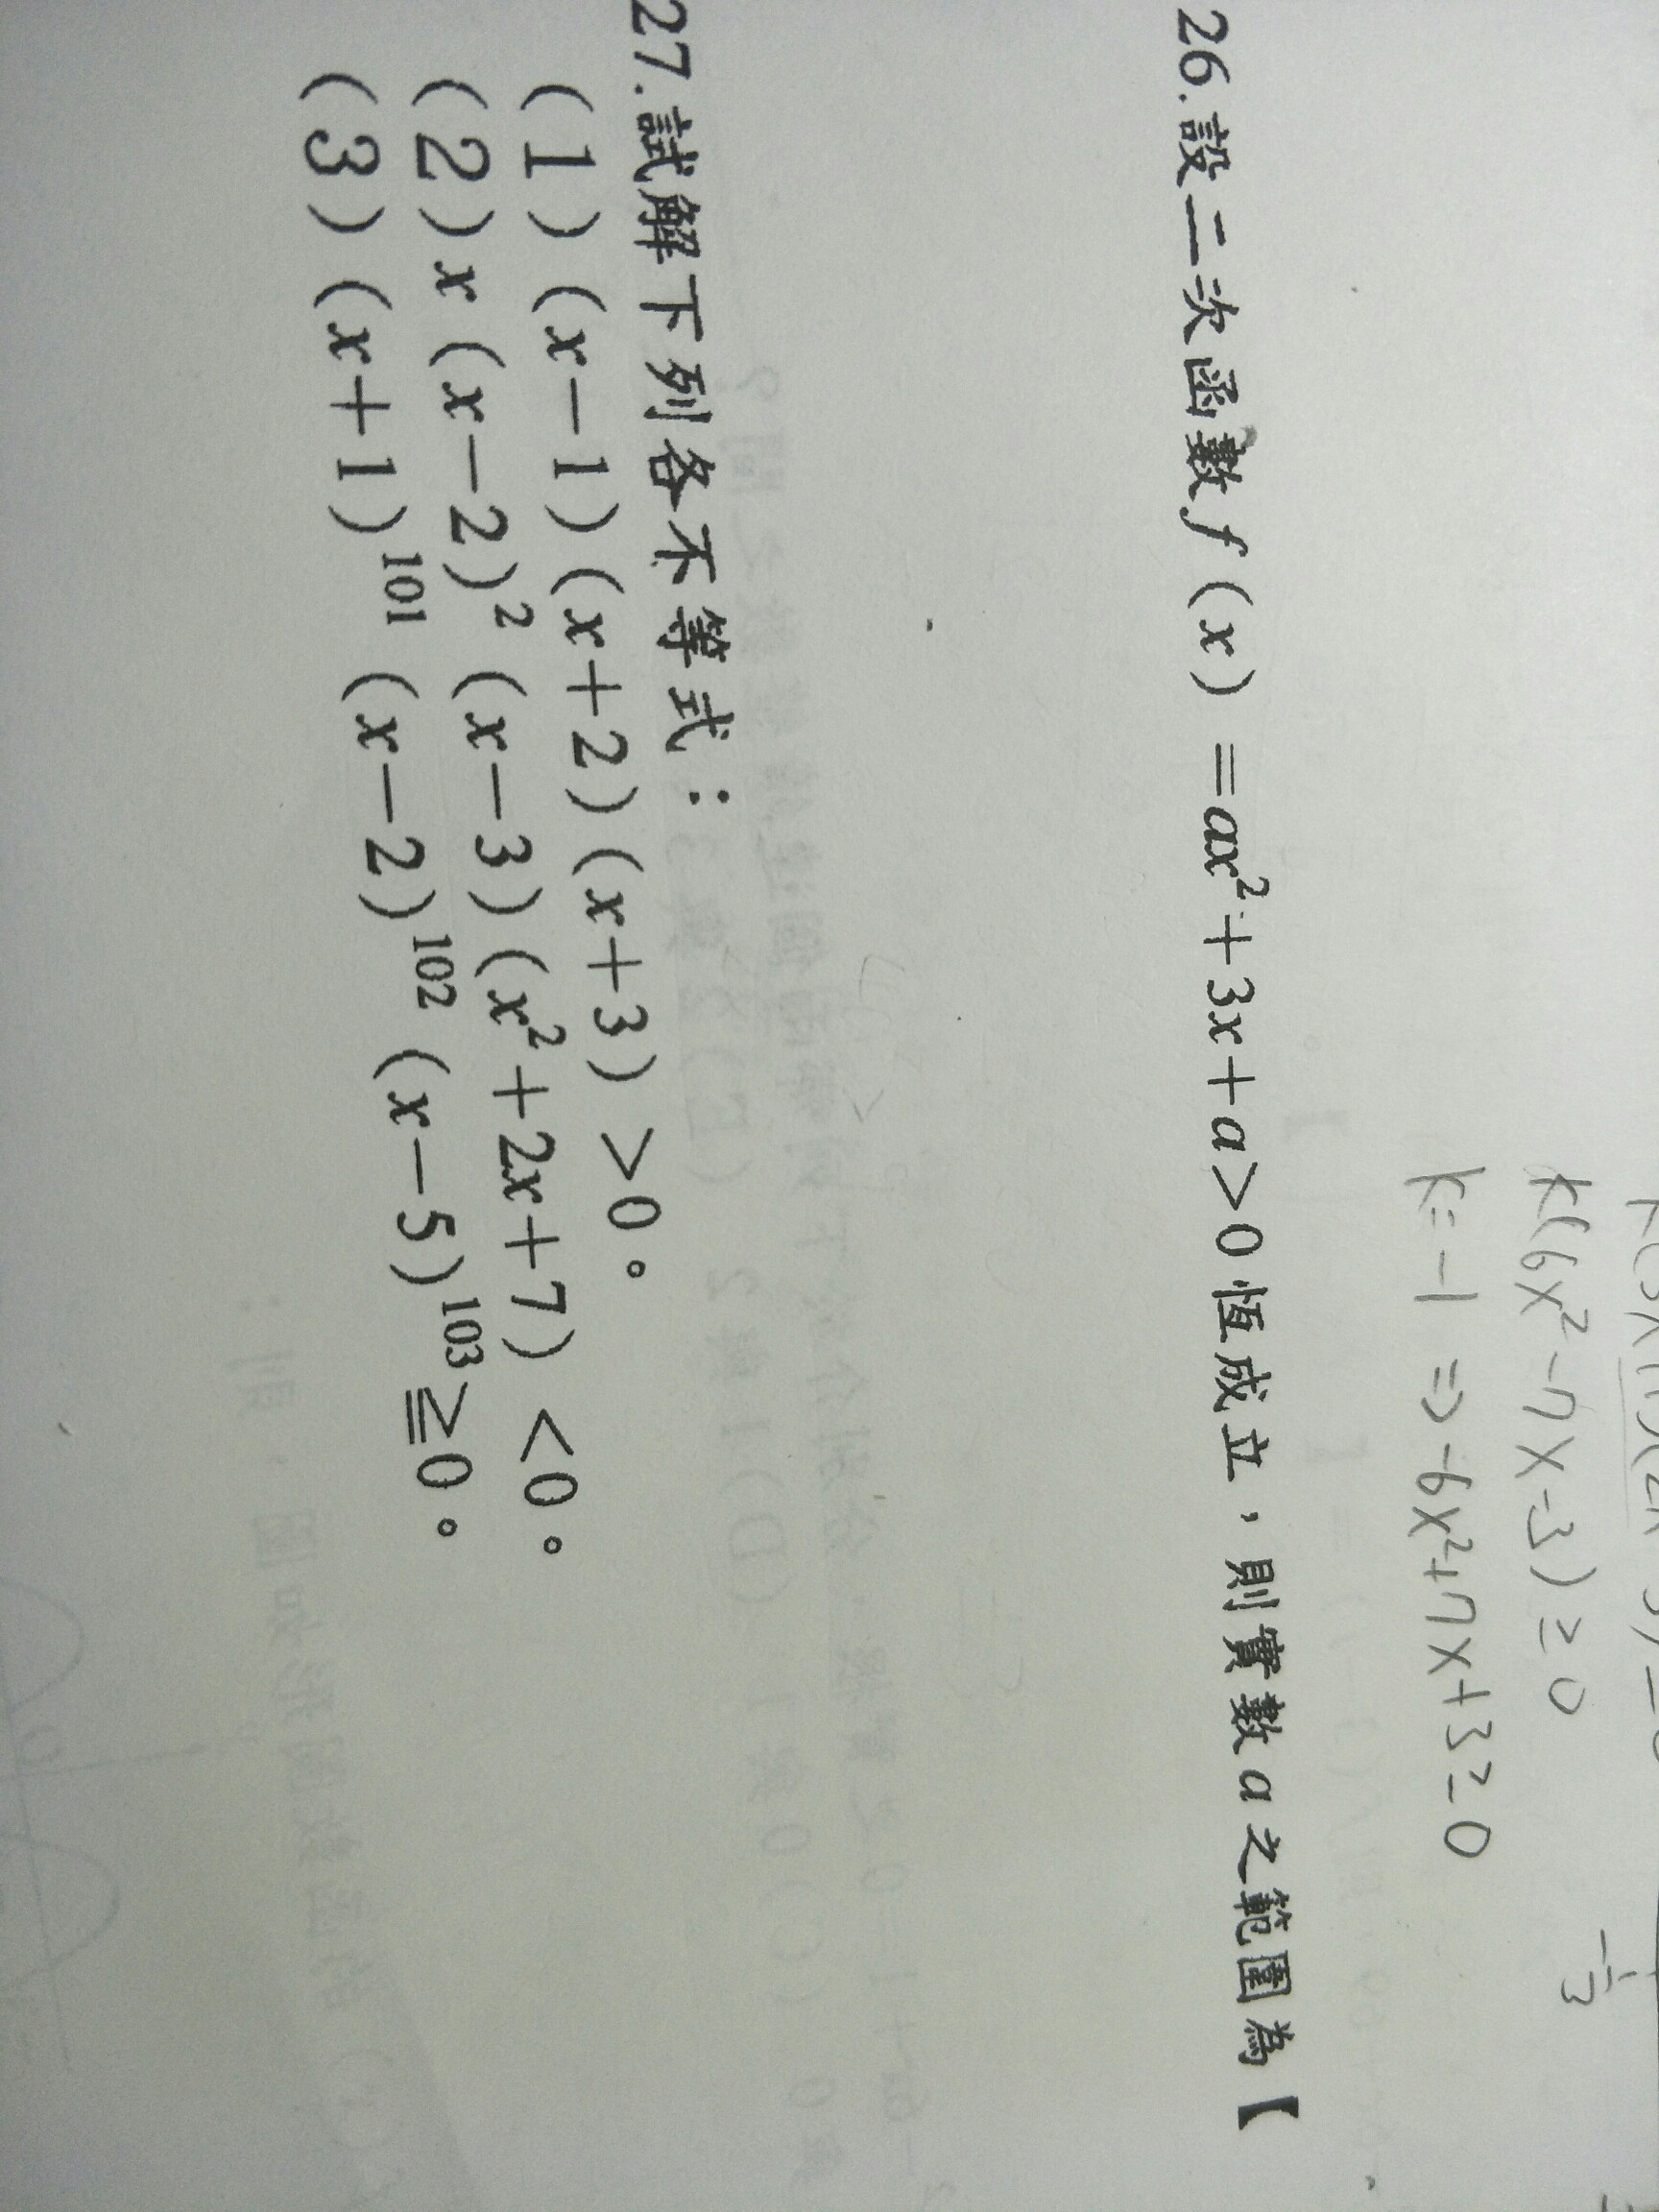 k(6x²-7x-3)≥0
k=-1 ⇒ -6x²+7x+3≥0
-1/3
26.設二次函數f(x)=ax²+3x+a>0恆成立,則實數a之範圍為【
27.試解下列各不等式:
(1)(x-1)(x+2)(x+3)>0。
(2)x(x-2)²(x-3)(x²+2x+7)<0。
(3)(x+1)¹⁰¹(x-2)¹⁰²(x-5)¹⁰³≧0。